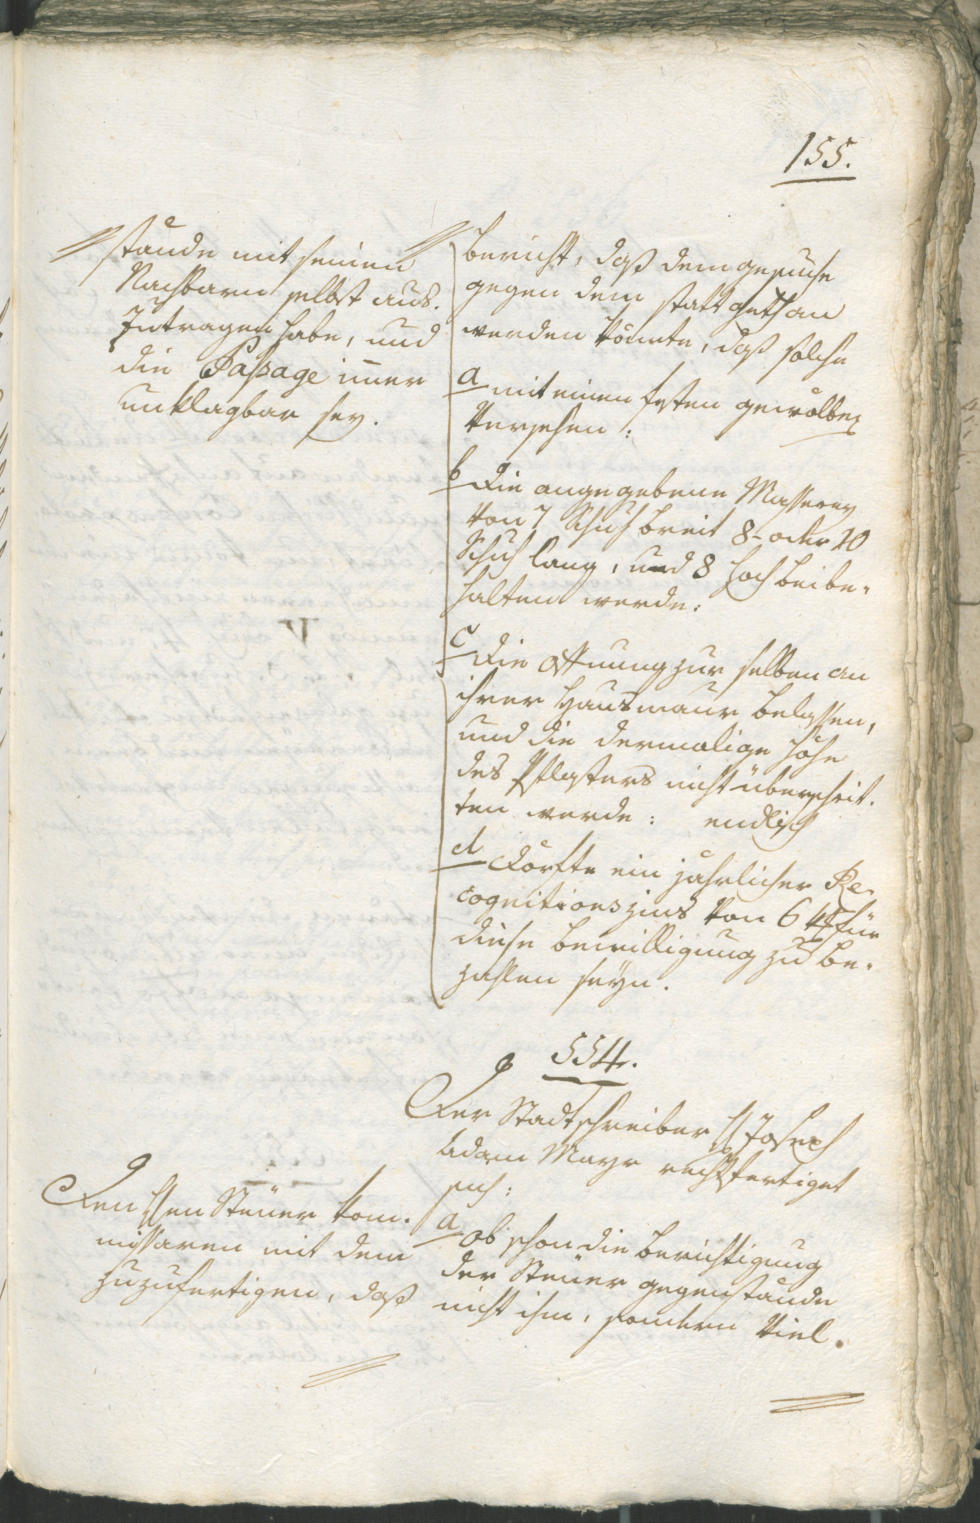 155.
stände mit seinen
Nachbarn selbst aus-
zutragen habe, und
die Passage im̄er
unklagbar sey.
bericht, daß dem gesuche
gegen dem statt gethan
werden könnte, daß solche
a mit einem festen gewölbe
versehen:
b Die angegebene Masserey
von 7 Schuh breit 8- oder 10
Schuh lang, und 8 hoch beibe-
halten werde:
c Die öffnung zur selben an
ihrer Hausmaur belassen,
und die dermalige höhe
des Pflasters nicht überschrit-
ten werde: endlich
d Dörfte ein jährlicher Re-
cognitionszins von 6 für
diese bewilligung zu be-
zahlen seyn.
554.
Der Stadtschreiber H Joseph
Adam Mayr rechtfertiget
sich:
a ob schon die berichtigung
der Steuer gegenstände
nicht ihm, sondern viel-
Den Hen Steuer kom-
missaren mit dem
zuzufertigen, daß